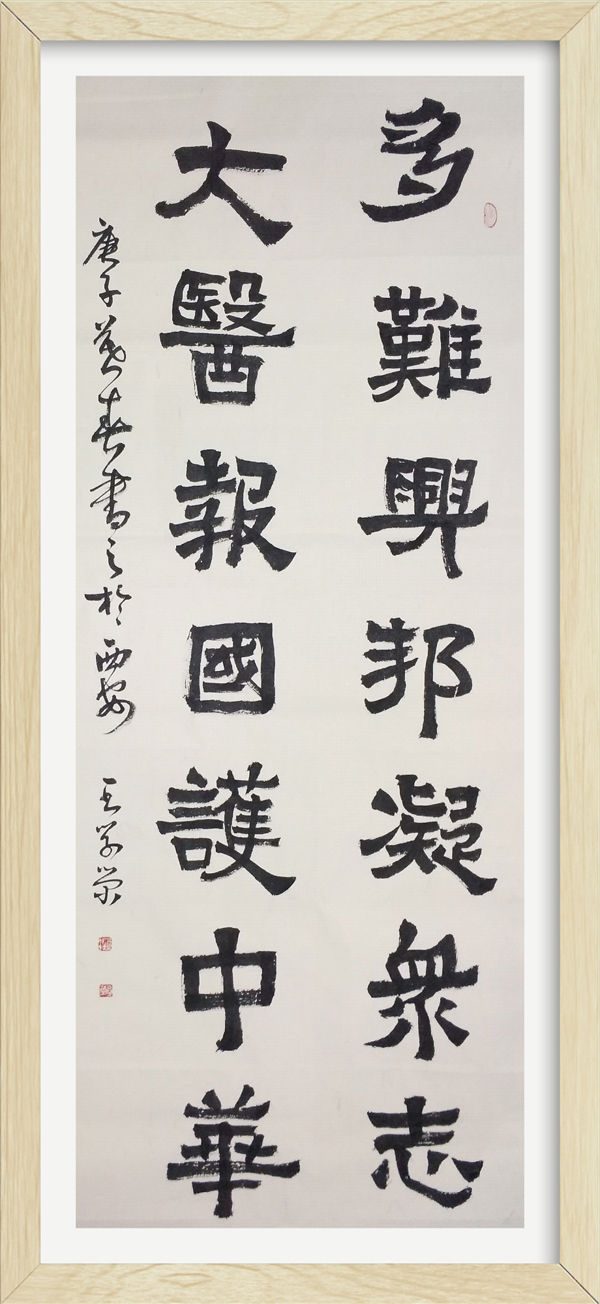 多難興邦凝衆志
大醫報國護中華
庚子暮春書之於西安 王學榮